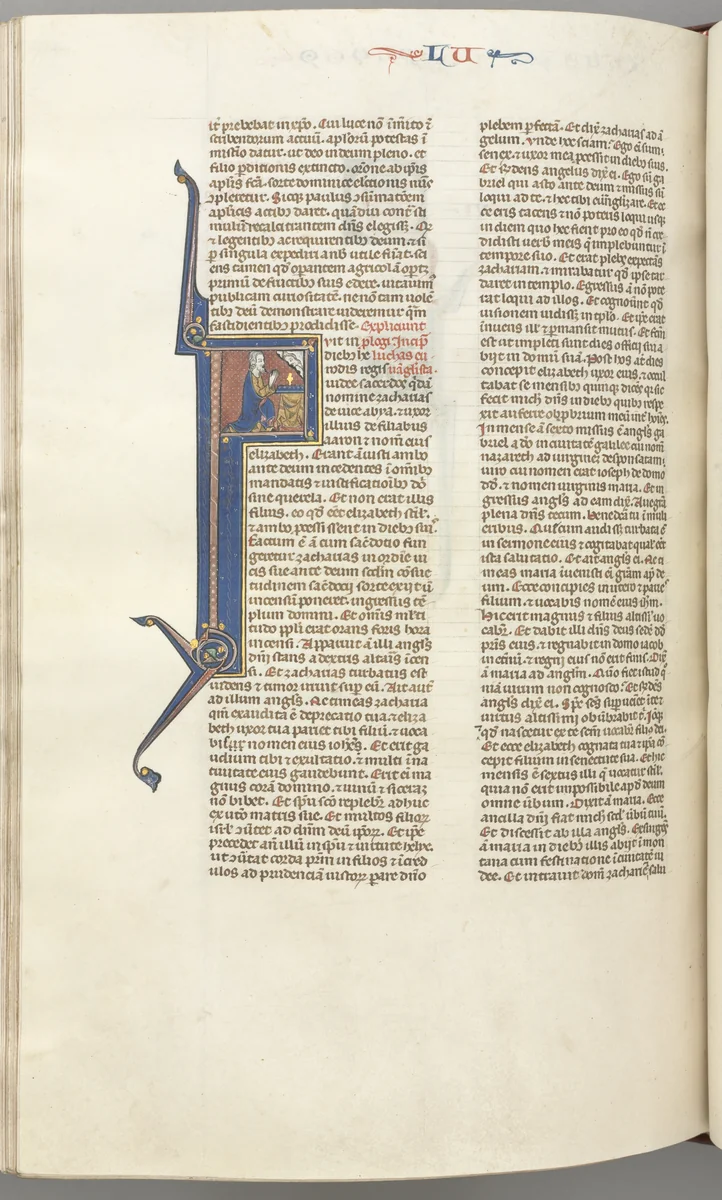 LU
it prebebat in xpo. Cui luce nō īm̄ito ē
scribendorum actuū. aplōrū potestas ī
misīo datur. ut deo in deum pleno. et
filio pditionis extincto. orōne ab ip̄is
aplīs fcā. sorte dominice electionis nūs
ꝯpletetur. Sicq; paulus ꝯsūmatōem
aplīcis actibꝫ daret. quā diu contͣ sti
mulū recalcitrantem dn̄s elegissꝫ. Qd
⁊ legentibꝫ ac requirentibꝫ deum ⁊ si
p singula expediri a nob̄ utile fuāt. sci
ens tamen qd̓ opantem agricolā oportꝫ
primū de fructibꝫ suis edere. uitauimꝰ
publicam curiositatē. ne nō tam uolē
tibꝫ deū demonstrare uideremur qͣm
fastidientibꝫ prodidisse. Expliciunt
F
uit in plogi. Incip̄
diebꝫ he luchas eu
rodis regis uāglista.
iudee sacerdos qͥdā
nomine zacharias
de uice abya. ⁊ uxor
illius de filiabus
aaron ⁊ nom̄ eius
elizabeth. Erant ā iusti ambo
ante deum incedentes ī om̄ibꝫ
mandatis ⁊ iustificatioībꝫ dn̄i
sine querela. Et non erat illis
filius. eo qd̓ eēt elizabeth stil̓.
⁊ ambo pcessissent in diebꝫ suis.
Factum ē ā cum sac̄dotio fun
geretur zacharias in ordīe ui
cis sue ante deum scd̄m ꝯsue
tudinem sac̄docij sorte exijt ū
incensū poneret. ingressus tē
plum domini. Et om̄is ml̓ti
tudo ppl̓i erat orans foris hora
incensi. Apparuit ā illi angl̓s
dn̄i stans a dextris altaris īcen
si. Et zacharias turbatus est
uidens ⁊ timor irruit sup eū. Ait aut̄
ad illum angl̓s. Ne timeas zacharia
qm̄ exaudita ē deprecatio tua. ⁊ eliza
beth uxor tua pariet tibi filiū. ⁊ uoca
bis nomen eius ioh̄es. Et erit ga
udium tibi ⁊ exultatio. ⁊ multi ī na
tiuitate eius gaudebunt. Erit ei̓ ma
gnus corā domino. ⁊ uinū ⁊ siceraꝫ
nō bibet. Et spū sc̄o replebꝫ adhuc
ex utͦ matris sue. Et multos filioꝝ
isrl̓ ꝯūtet ad dn̄m deū ipoꝝ. Et ip̄e
precedet an̄ illū in spū ⁊ uirtute helye.
ut ꝯūtat corda patrū in filios ⁊ īcred
ulos ad prudenciā iustoꝝ parare dn̄o
plebem pfectā. Et dix̄ zacharias ad ā
gelum. Vnde hoc sciam? Ego ei̓ sum
senex. ⁊ uxor mea pcessit in diebꝫ suis.
Et rn̄dens angelus dix̄ ei. Ego sū ga
briel qui asto ante deum ⁊ missus sū
loqui ad te. ⁊ hec tibi euāglizare. Et ec
ce eris tacens ⁊ nō potens loqui usq;
in diem quo hec fient pro eo qd̓ n̄ cre
didisti verbis meis q̄ implebuntur ī
tempore suo. Et erat plebs expectās
zachariam. ⁊ mirabatur qd̓ ip̄e tar
daret in templo. Egressus ā nō pote
rat loqui ad illos. Et cognoūnt qd̓
uisionem uidissꝫ in tēplo. Et ip̄e erat
innuens ill̓ ⁊ pmansit mutus. Et factū
est ut impleti sunt dies officij sui a
bijt in domū suā. Post hos āt dies
concepit elizabeth uxor eius. ⁊ occul
tabat se mensibꝫ quinq; dicēs qꝛ sic
fecit mich̄ dn̄s in diebꝫ quibꝫ respe
xit auferre obprbrium meū int̄ hoīes.
In mense ā sexto missus ē angl̓s ga
briel a do in ciuitatē galilee cui nom̄
nazareth ad uirginē desponsatam
uiro cui nomen erat ioseph de domo
dd̓. ⁊ nomen uirginis maria. Et in
gressus angl̓s ad eam dix̄. Aue grā
plena dn̄s tecum. benedicta tu ī muli
eribus. Que cum audissꝫ turbata ē
in sermone eius ⁊ cogitabat qualꝭ eēt
ista salutatio. Et ait angl̓s ei. Ne ti
meas maria īuenisti ei̓ grām ap̄ de
um. Ecce concipies in utero ⁊ paries
filium. ⁊ uocabis nomē eius ih̄m.
Hic erit magnus ⁊ filius altissīi uo
cabꝫ. Et dabit illi dn̄s sedē dd̓
pris̄ eius. ⁊ regnabit in domo iacob
in et̄nū. ⁊ regni eius nō erit finis. Dix̄
ā maria ad anglm̄. Quō fiet istud q̄
niā uirum non cognosco? Et rn̄dēs
angl̓s dix̄ ei. Sp̄c sc̄s supueīet ī te ⁊
uirtus altissimi obūbrabit t̄. Ioq;
⁊ qd̓ nascetur ex te sc̄m uocabꝫ filiꝰ dei.
Et ecce elizabeth cognata tua ⁊ ip̄a cō
cepit filium in senectute sua. Et hic
mensis ē sextus illi q̄ uocatur stil̓.
quia nō erit impossibile ap̄d deum
omne ūbum. Dixit ā maria. Ecce
ancilla dn̄i fiat mich̄ scd̓ ūbū tuū.
Et discessit ab illa angl̓s. Exsurgēs
ā maria in diebꝫ illis abijt ī mon
tana cum festinatione ī ciuitatē iu
dee. Et intrauit domū zacharie ⁊ salu